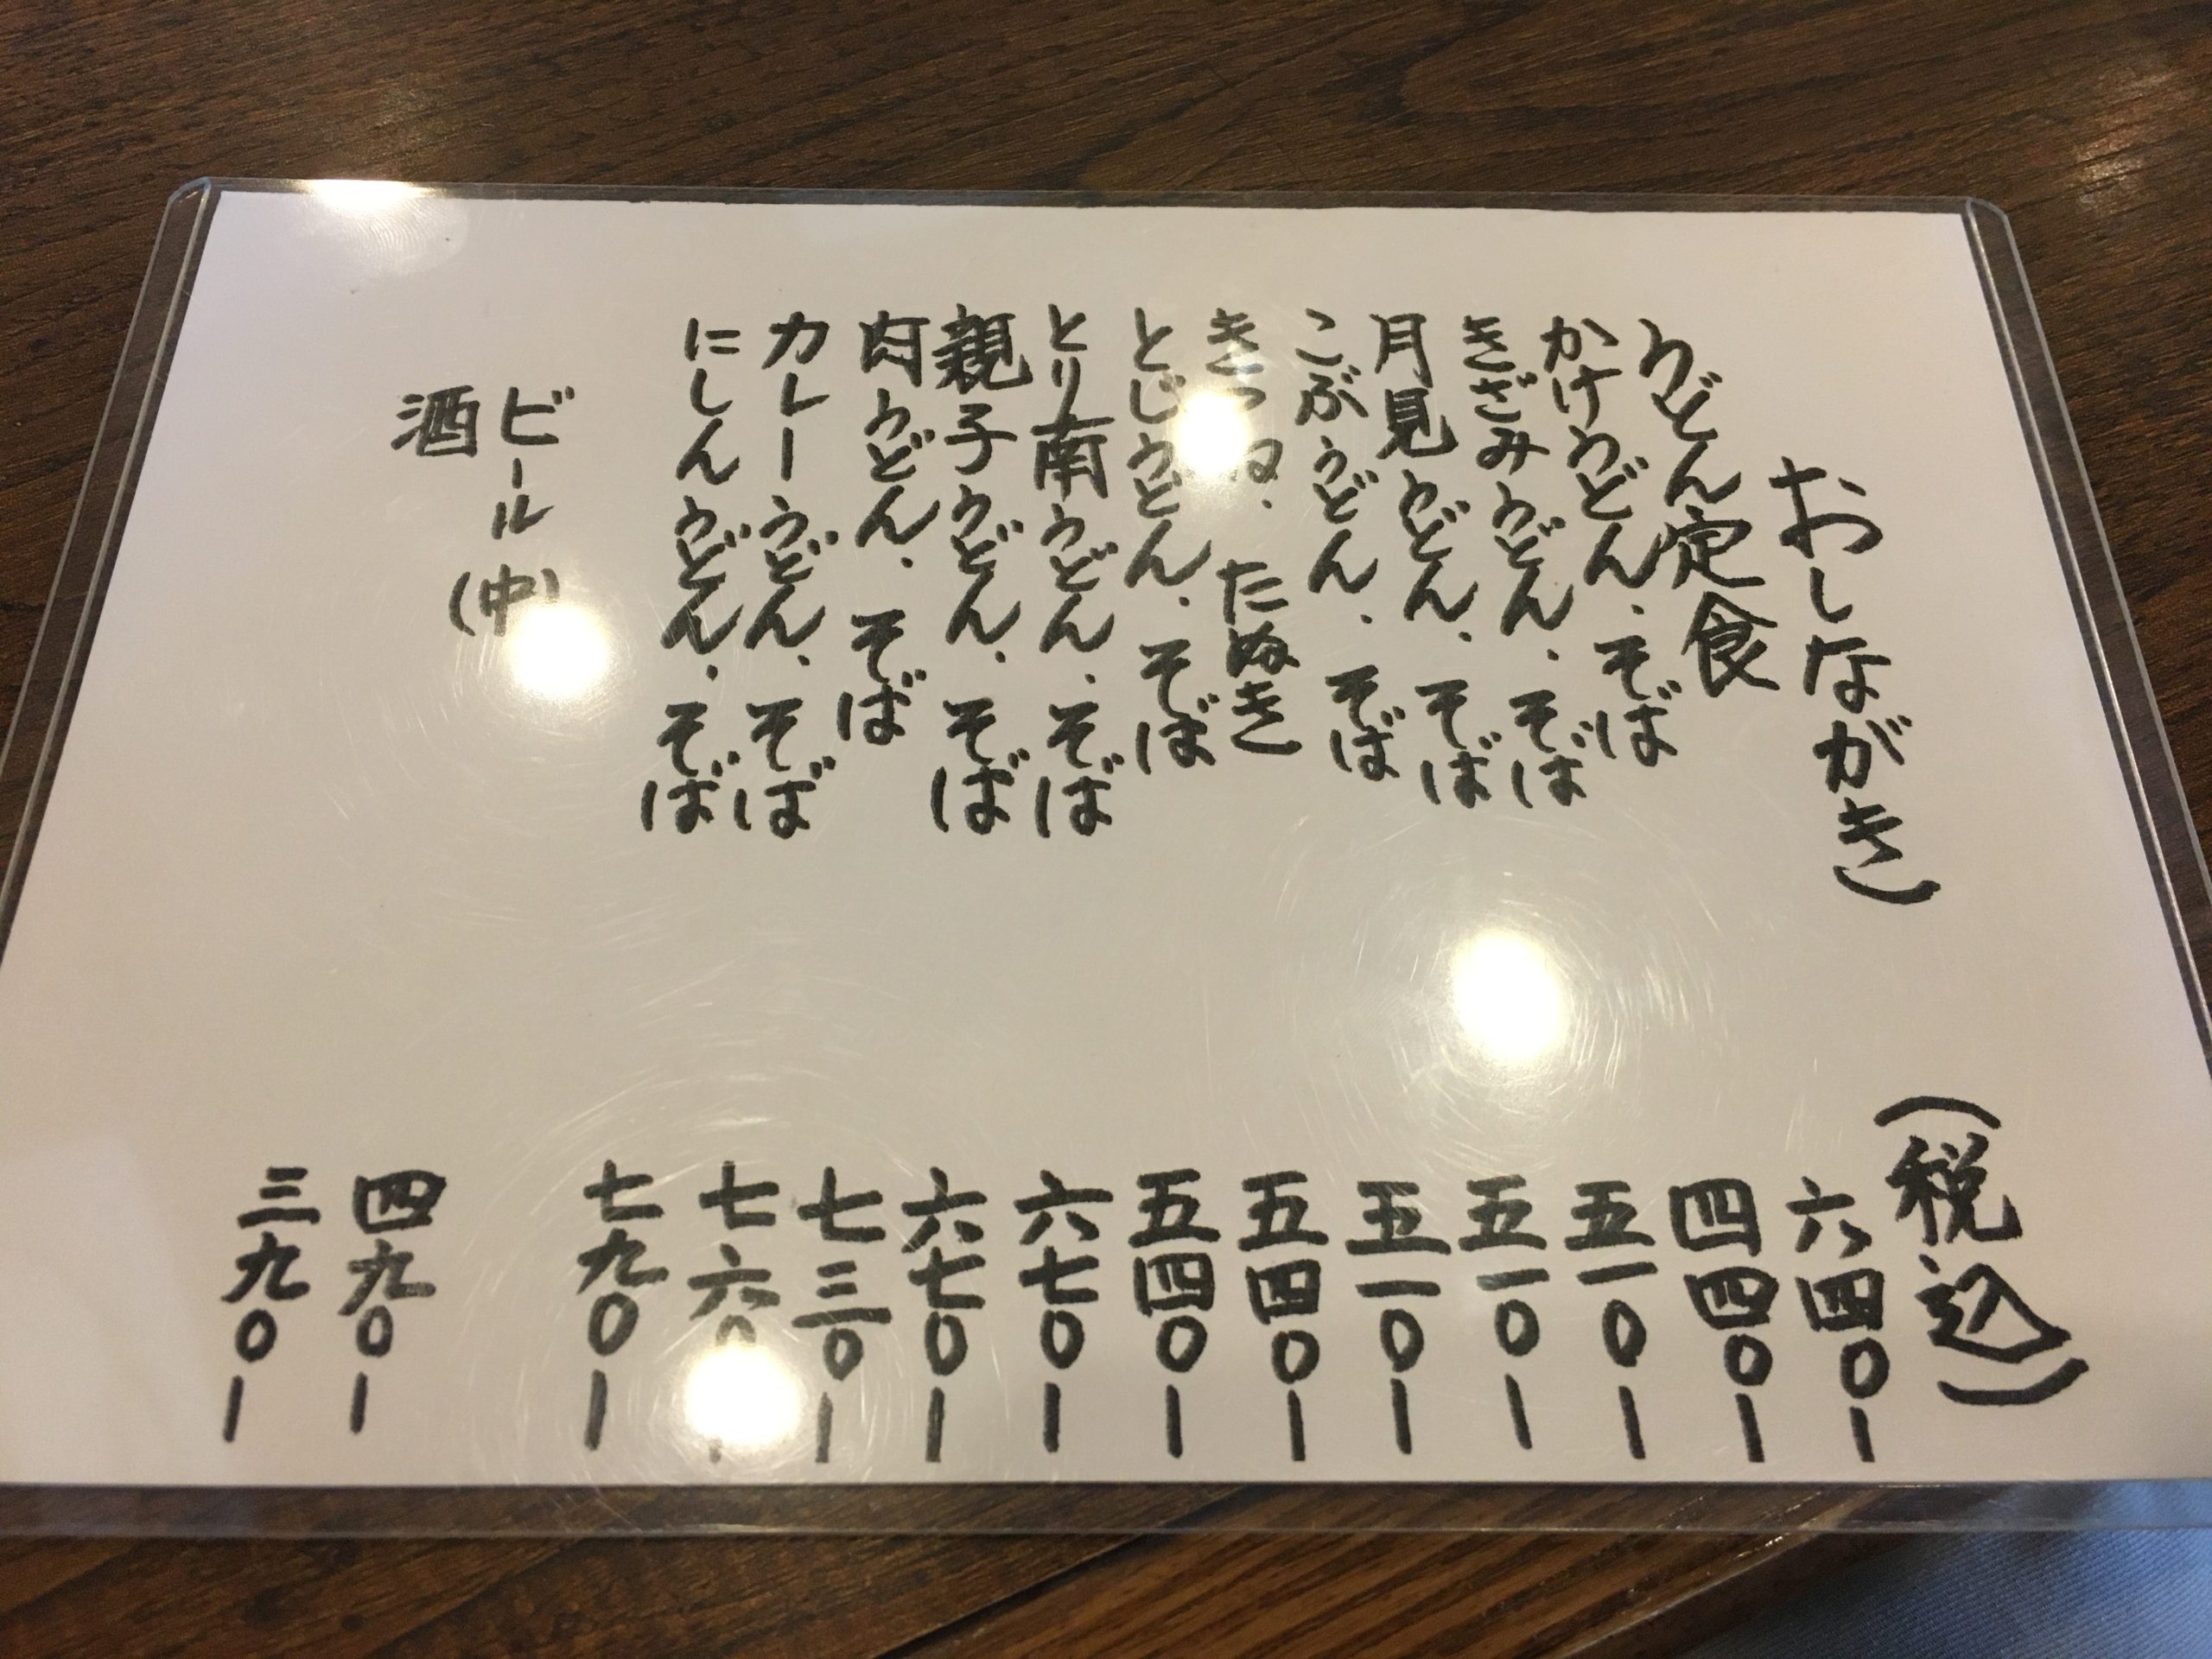 おしながき (税込)
うどん定食 六四〇ー
かけうどん、そば 四四〇ー
きざみうどん、そば 五一〇ー
月見うどん、そば 五一〇ー
こぶうどん、そば 五一〇ー
きつね、たぬき 五四〇ー
とじうどん、そば 五四〇ー
とり南うどん、そば 六七〇ー
親子うどん、そば 六七〇ー
肉うどん、そば 七三〇ー
カレーうどん、そば 七六〇ー
にしんうどん、そば 七九〇ー
ビール(中) 四九〇ー
酒 三九〇ー